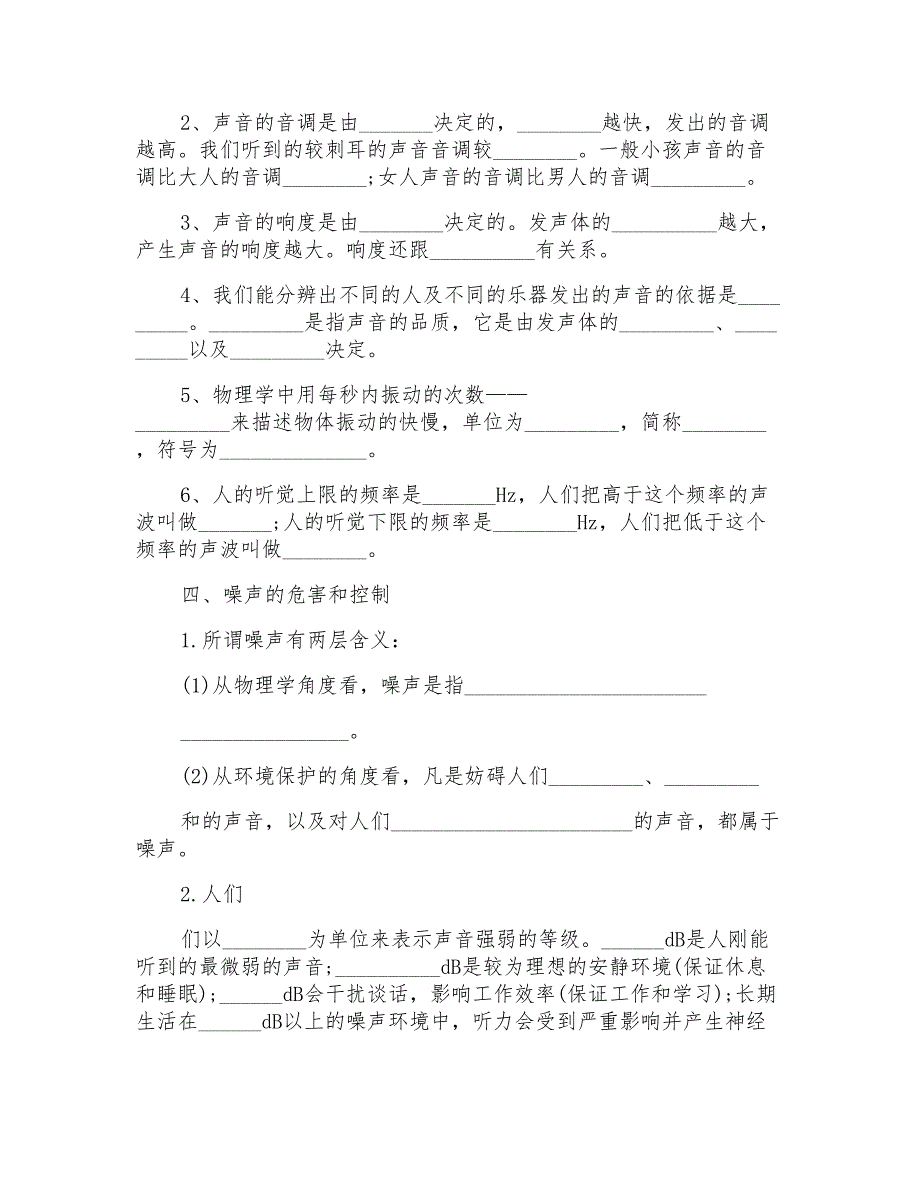 2、声音的音调是由_______决定的，________越快，发出的音调
越高。我们听到的较刺耳的声音音调较________。一般小孩声音的音
调比大人的音调________;女人声音的音调比男人的音调_________。
3、声音的响度是由________决定的。发声体的__________越大，
产生声音的响度越大。响度还跟__________有关系。
4、我们能分辨出不同的人及不同的乐器发出的声音的依据是____
_____。_________是指声音的品质，它是由发声体的_________、____
_____以及_________决定。
5、物理学中用每秒内振动的次数——
_________来描述物体振动的快慢，单位为_________，简称________
，符号为______________。
6、人的听觉上限的频率是_______Hz，人们把高于这个频率的声
波叫做_______;人的听觉下限的频率是________Hz，人们把低于这个
频率的声波叫做________。
四、噪声的危害和控制
1.所谓噪声有两层含义：
(1)从物理学角度看，噪声是指_______________________
________________。
(2)从环境保护的角度看，凡是妨碍人们_________、_________
和的声音，以及对人们_______________________的声音，都属于
噪声。
2.人们
们以________为单位来表示声音强弱的等级。______dB是人刚能
听到的最微弱的声音;__________dB是较为理想的安静环境(保证休息
和睡眠);______dB会干扰谈话，影响工作效率(保证工作和学习);长期
生活在______dB以上的噪声环境中，听力会受到严重影响并产生神经